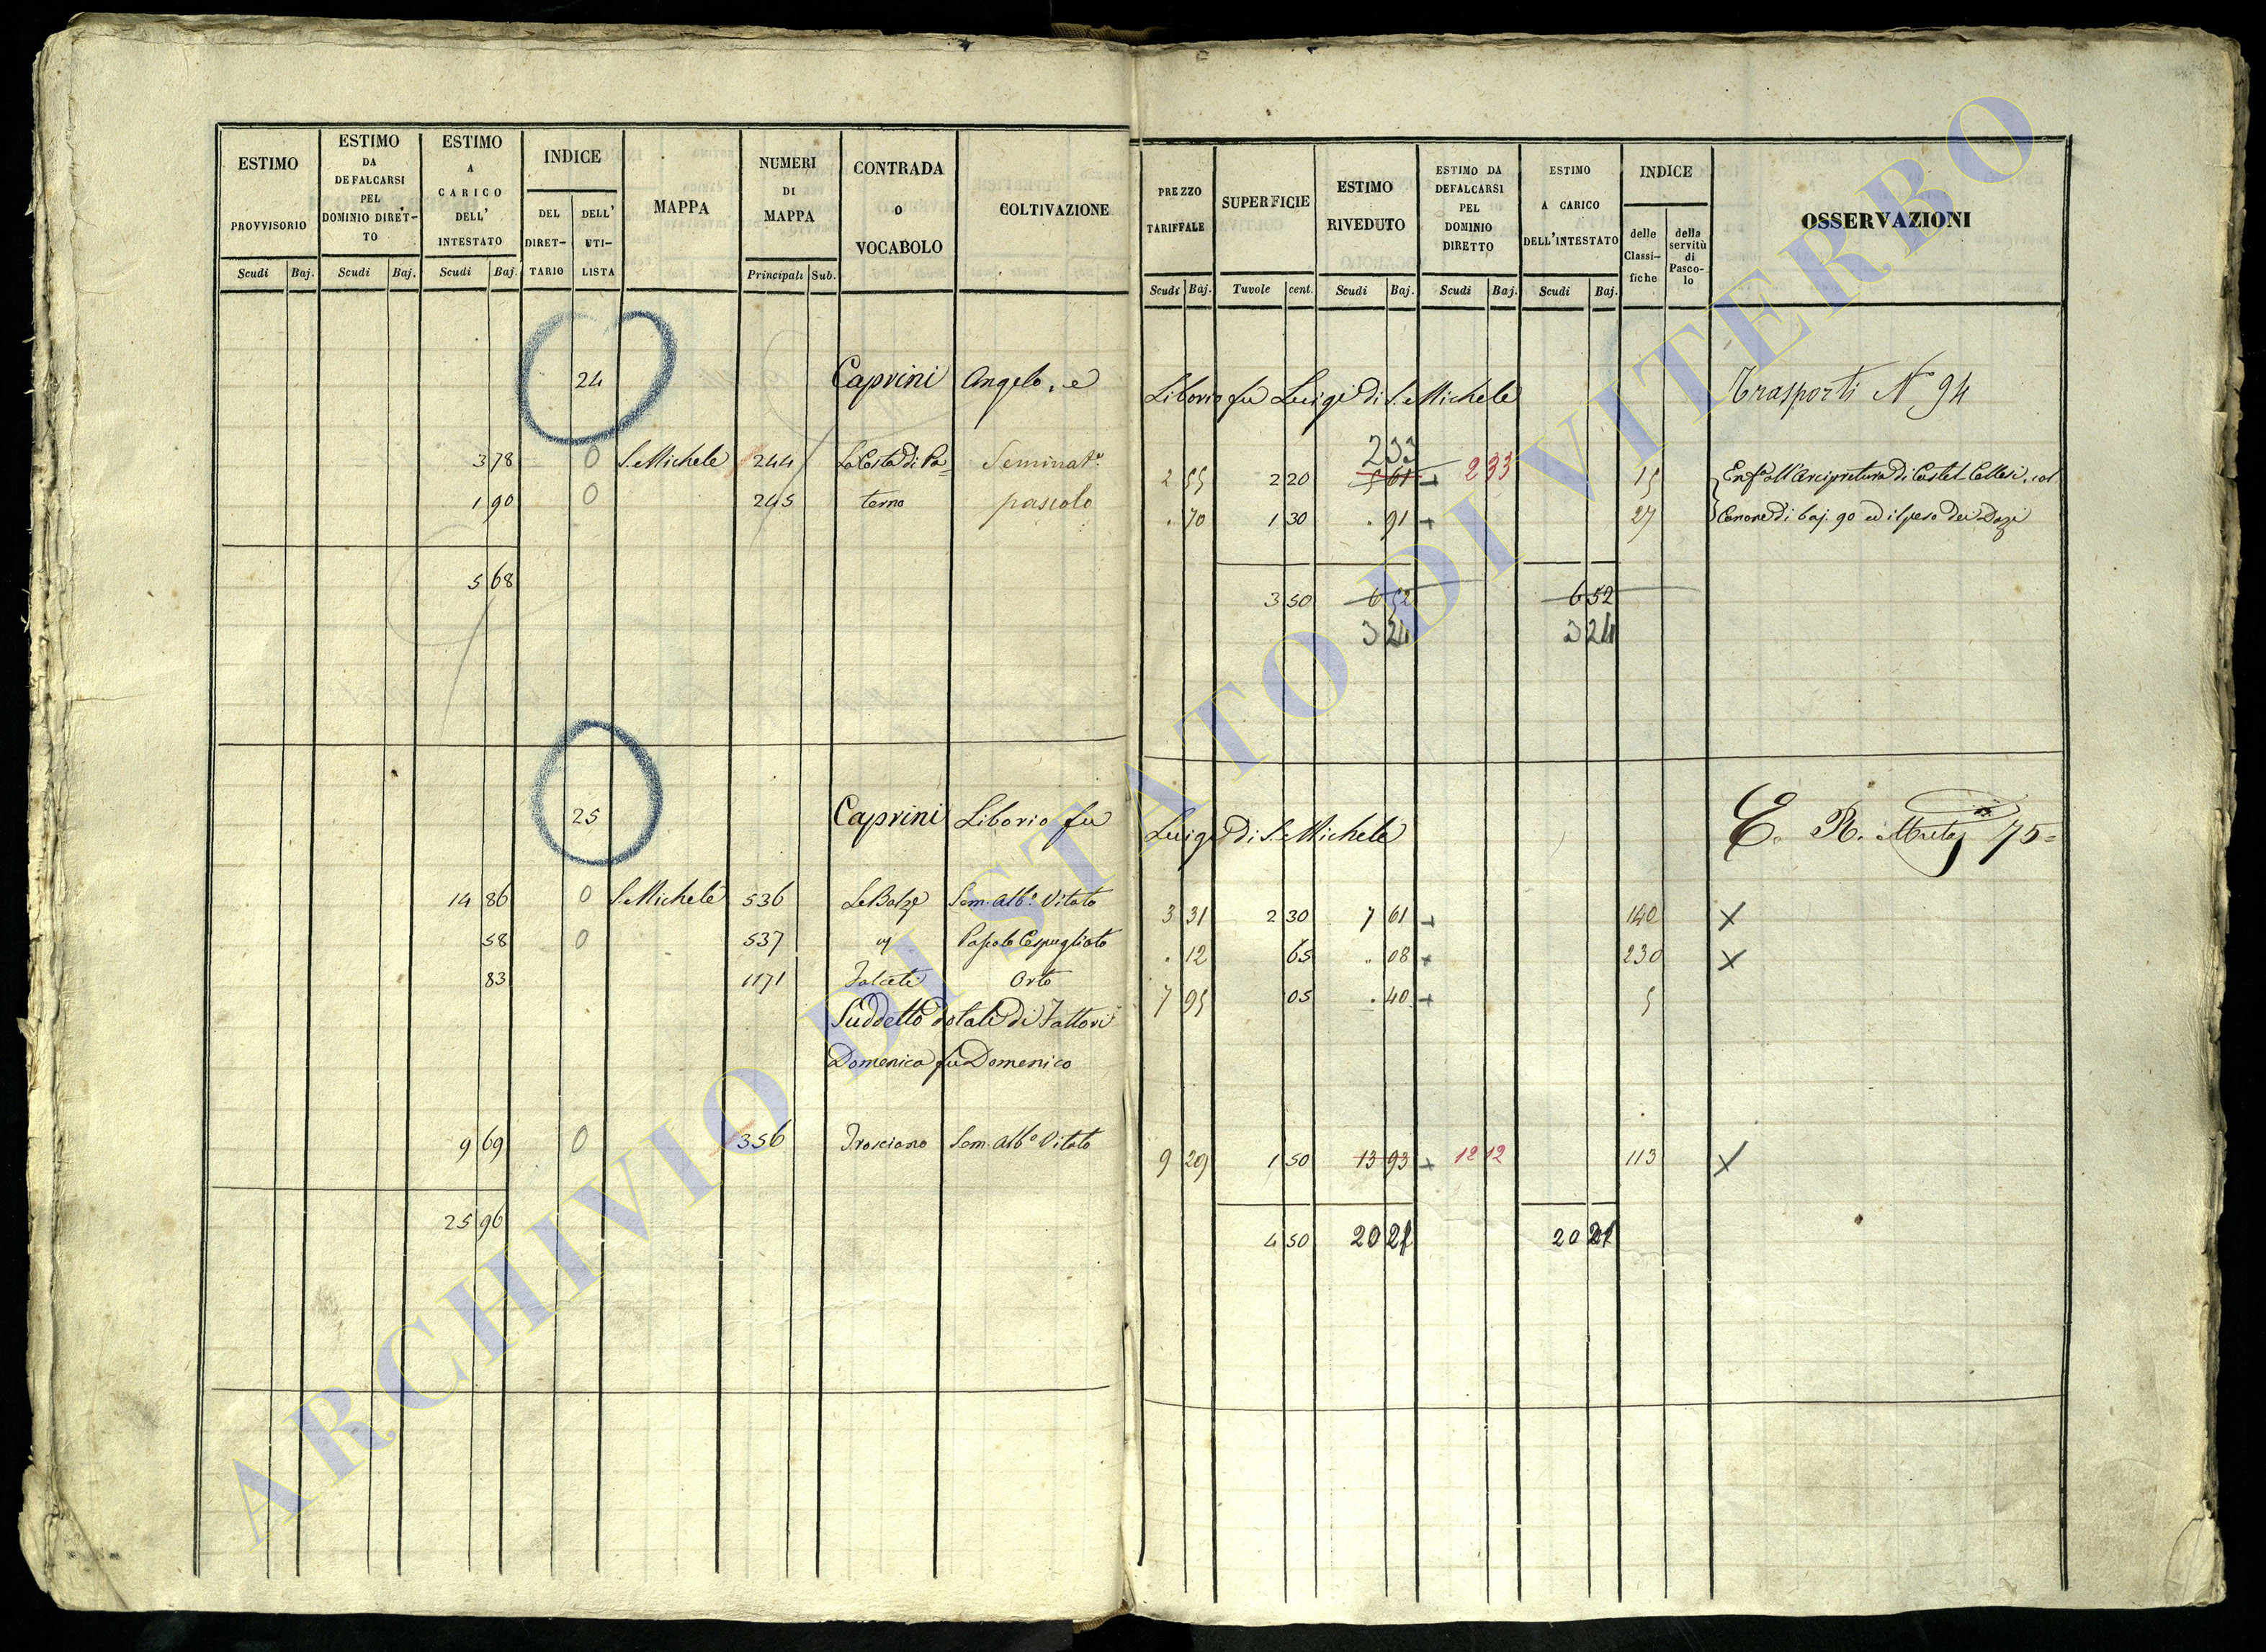 ESTIMO PROVVISORIO Scudi Baj.
ESTIMO DA DEFALCARSI PEL DOMINIO DIRETTO Scudi Baj.
ESTIMO A CARICO DELL' INTESTATO Scudi Baj.
INDICE DEL DIRETTARIO DELL' UTILISTA
MAPPA
NUMERI DI MAPPA Principali Sub.
CONTRADA O VOCABOLO
COLTIVAZIONE
PREZZO TARIFFALE Scudi Baj.
SUPERFICIE Tavole cent.
ESTIMO RIVEDUTO Scudi Baj.
ESTIMO DA DEFALCARSI PEL DOMINIO DIRETTO Scudi Baj.
ESTIMO A CARICO DELL'INTESTATO Scudi Baj.
INDICE delle Classifiche della servitù di Pascolo
OSSERVAZIONI
24 Caprini Angelo, e Liborio fu Luigi di S. Michele Trasporti N° 94
233
3 78 0 S. Michele 244 La Costa di Pa= Seminato. 2 55 2 20 5 61 2 33 15 Enf. all'Arcipretura di Castel Cellesi, col
1 90 0 245 terno pascolo . 70 1 30 . 91 27 Canone di baj. 90 ed il peso dei Dazi
5 68 3 50 6 52 6 52
3 24 3 24
25 Caprini Liborio fu Luigi di S. Michele E. R. 75=
14 86 0 S. Michele 536 Le Balze Sem. Alb.o Vitato 3 31 2 30 7 61 140 X
58 0 537 Pascolo Cespugliato . 12 65 . 08 230 X
83 1171 Orto 7 95 05 . 40 5
Suddetto dotali di Fattori
Domenica fu Domenico
9 69 0 356 Trosciano Sem. Alb.o Vitato 9 29 1 50 13 93 12 12 113 X
25 96 4 50 20 21 20 21
ARCHIVIO DI STATO DI VITERBO